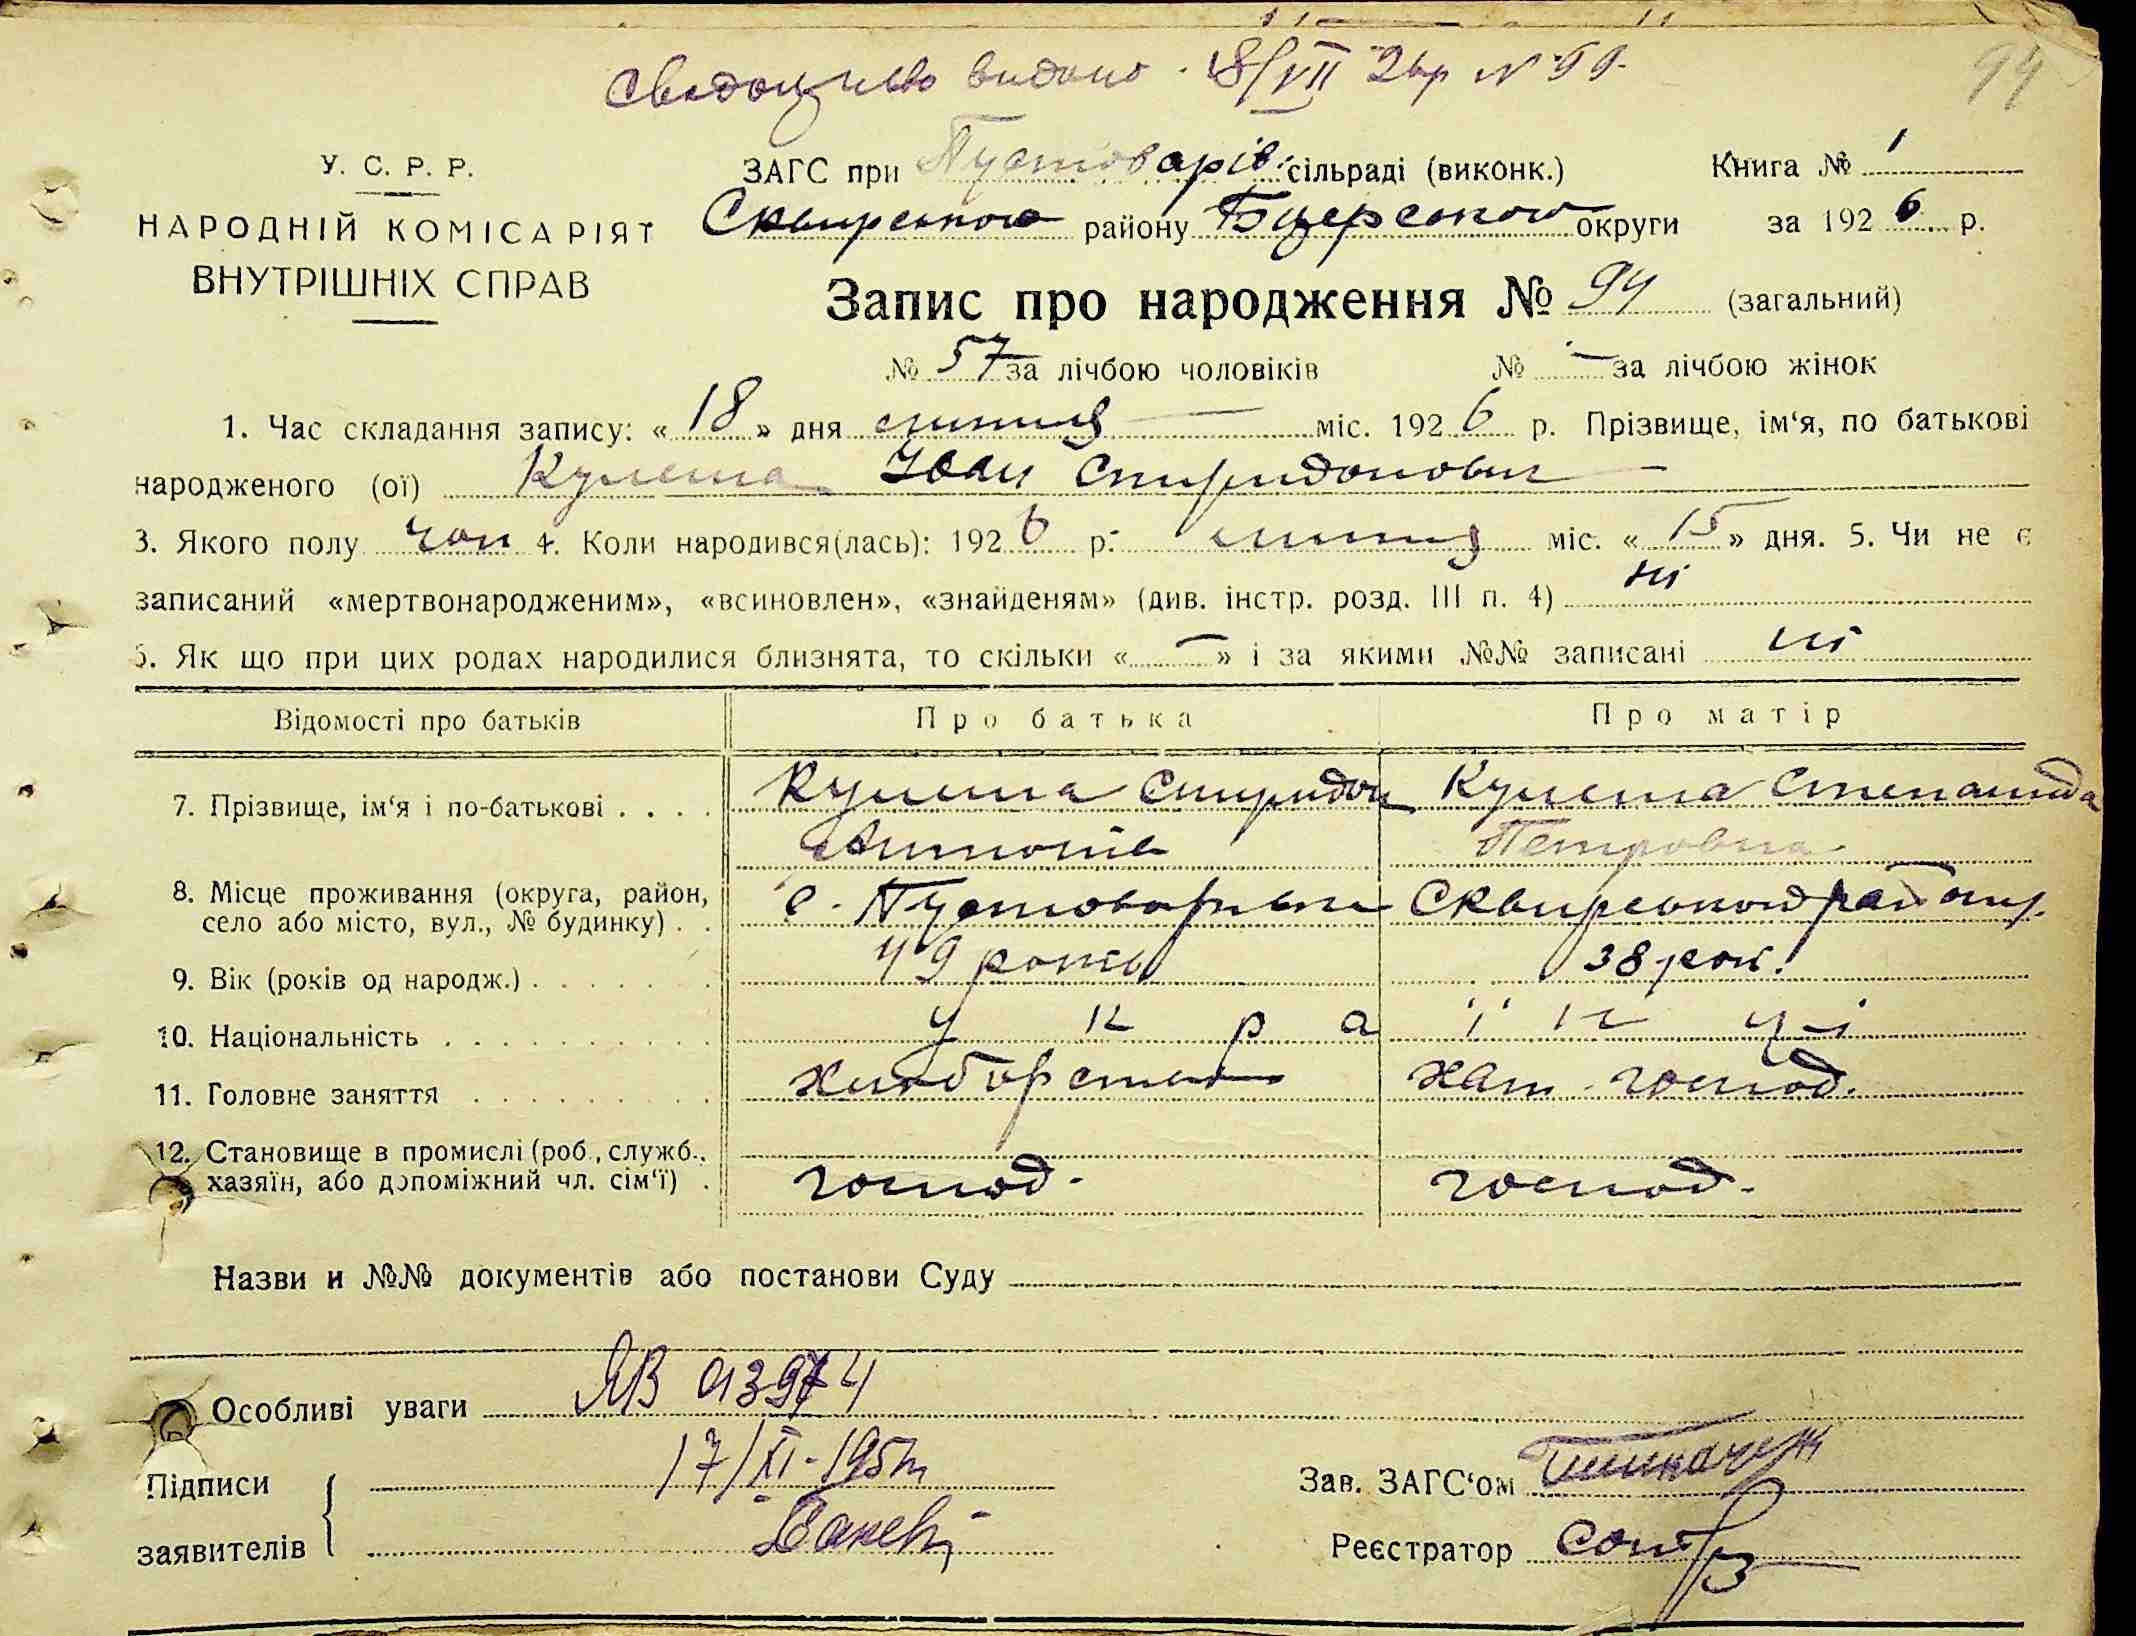 Свідоцтво видано 8/VII 26р N 99
94
У. С. Р. Р.
НАРОДНІЙ КОМІСАРІЯТ
ВНУТРІШНІХ СПРАВ
ЗАГС при Пустоварів. сільраді (виконк.) Книга № 1
Сквирського району Бцерського округи за 1926 р.
Запис про народження № 94 (загальний)
№ 57 за лічбою чоловіків № — за лічбою жінок
1. Час складання запису: «18» дня липня міс. 1926 р. Прізвище, ім‘я, по батькові
народженого (ої) Кулеша Іван Спиридонович
3. Якого полу чол 4. Коли народився(лась): 1926 р. липня міс. «15» дня. 5. Чи не є
записаний «мертвонародженим», «всиновлен», «знайденям» (див. інстр. розд. III п. 4) ні
6. Як що при цих родах народилися близнята, то скільки «—» і за якими №№ записані ні
Відомості про батьків Про батька Про матір
7. Прізвище, ім‘я і по-батькові . . . . Кулеша Спиридон Кулеша Степанида
Антонів Петровна
8. Місце проживання (округа, район, с. Пустоварівка Сквирського району
село або місто, вул., № будинку) . .
9. Вік (років од народж.) 49 років 38 рок.
10. Національність українці
11. Головне заняття хліборство хат. господ.
12. Становище в промислі (роб., служб.,
хазяїн, або допоміжний чл. сім‘ї) . господ. господ.
Назви и №№ документів або постанови Суду
Особливі уваги ЯВ
17/XI-195
Підписи
заявителів
Зав. ЗАГС‘ом
Реєстратор